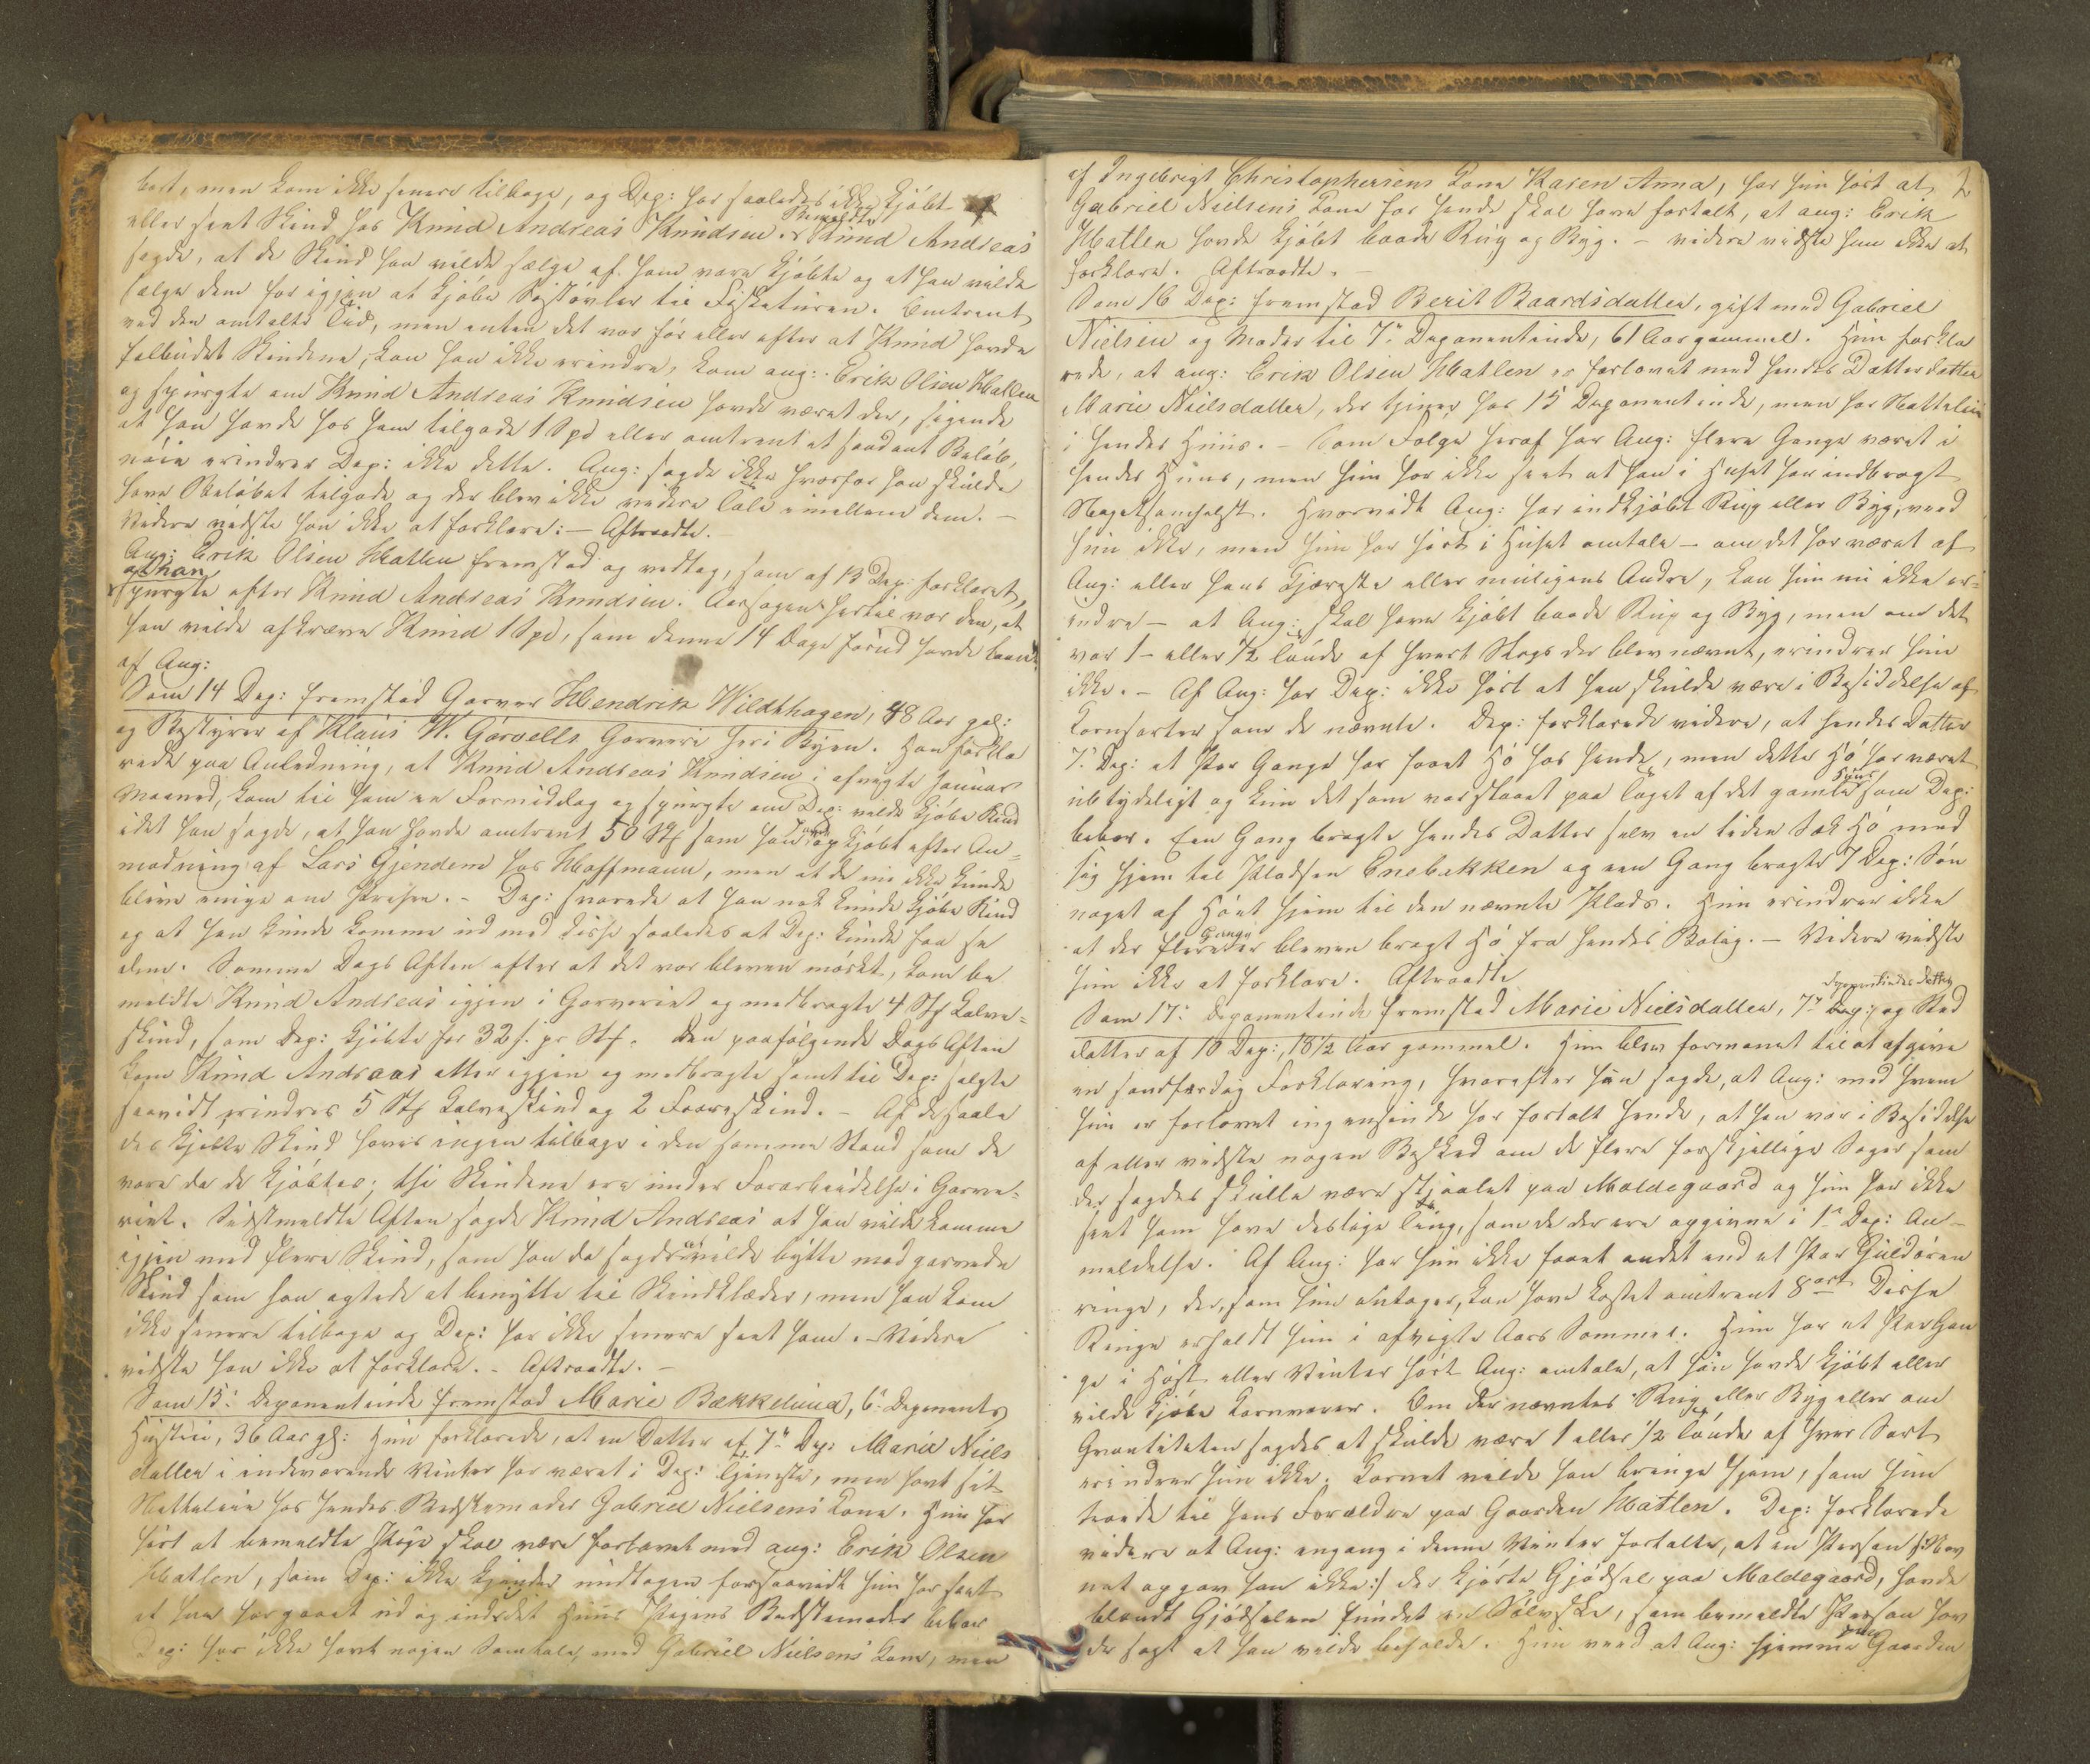 bort, men kom ikke senere tilbage, og Dep: har saaledes ikke kjøbt
eller seet Skind hos Knud Andreas Knudsen. Bemeldte Knud Andreas
sagde, at de Skind han vilde sælge af ham vare kjøbte og at han vilde
sælge dem for igjen at kjøbe Søstøvler til Fisketuren. Omtrent
ved den omtalte Tid, men enten det var før eller efter at Knud havde
falbudet Skindene, kan han ikke erindre, kom ang: Erik Olsen Hatlen
og spurgte om Knud Andreas Knudsen havde været der, sigende
at han havde hos ham tilgode 1 Spd eller omtrent et saadant Beløb,
nøie erindrer Dep: ikke dette. Ang: sagde ikke hvorfor han skulde
have Beløbet tilgode og der blev ikke videre Tale imellem dem. –
Videre vidste han ikke at forklare: – Aftraadte.
Ang: Erik Olsen Hatlen fremstod og vedtog, som af 13 Dep: forklaret,
at han spurgte efter Knud Andreas Knudsen. Aarsagen hertil var den, at
han vilde afkræve Knud 1 Spd, som denne 14 Dage forud havde laant
af Ang:
Som 14 Dep: fremstod Garver Hendrik Wildthagen, 48 Aar gel:
og Bestyrer af Klaus W. Gørvells Garveri her i Byen. Han forkla
rede paa Anledning, at Knud Andreas Knudsen i afvigte Januar
Maaned, kom til ham en Formiddag og spurgte om Dep: vilde kjøbe Skind
idet han sagde, at han havde omtrent 50 Stk som han havde opkjøbt efter An=
modning af Lars Gjendem hos Hoffmann, men at de nu ikke kunde
blive enige om Prisen. – Dep: svarede at han nok kunde kjøbe Skind
og at han kunde komme ud med disse saaledes at Dep: kunde faa se
dem. Samme Dags Aften efter at det var bleven mørkt, kom be
meldte Knud Andreas igjen i Garveriet og medbragte 4 Stk Kalve=
skind, som Dep: kjøbte for 32 s. pr Stk. Den paafølgende Dags Aften
kom Knud Andreas atter igjen og medbragte samt til Dep: solgte
saavidt erindres 5 Stk Kalveskind og 2 Faareskind. – Af de saale
des kjøbte Skind haves ingen tilbage i den samme Stand som de
vare da de kjøbtes; thi Skindene ere under Forarbeidelse i Garve=
riet. Sidstmeldte Aften sagde Knud Andreas at han vilde komme
igjen med flere Skind, som han da sagde at vilde bytte med garvede
Skind som han agtede at benytte til Skindklæder, men han kom
ikke senere tilbage og Dep: har ikke senere seet ham. – Videre
vidste han ikke at forklare. – Aftraadte. –
Som 15: Deponentinde fremstod Marie Bækkelund, 6: Deponents
Hustru, 36 Aar gl: Hun forklarede, at en Datter af 7de Dep: Marie Niels
datter i indeværende Vinter har været i Dep: Tjeneste, men havt sit
Natteleie hos hendes Bedstemoder Gabriel Nielsens Kone. Hun har
hørt at bemeldte Pige skal være forlovet med ang: Erik Olsen
Hatlen, som Dep: ikke kjender undtagen forsaavidt hun har seet
at han har gaaet ud og ind i det Huus Pigens Bedstemoder bebor
Dep: har ikke havt nogen Samtale med Gabriel Nielsens Kone, men
2
af Ingebrigt Christophersens Kone Karen Anna, har hun hørt at
Gabriel Nielsens Kone for hende skal have fortalt, at ang: Erik
Hatlen havde kjøbt baade Rug og Byg. – videre vidste hun ikke at
forklare. Aftraadte. –
Som 16 Dep: fremstod Berit Baardsdatter, gift med Gabriel
Nielsen og Moder til 7de Deponentinde, 61 Aar gammel. Hun forkla
rede, at ang: Erik Olsen Hatlen er forlovet med hendes Datterdatter
Marie Nielsdatter, der tjener hos 15 Deponentinde, men har Natteleie
i hendes Huus. – Som Følge heraf har Ang: flere Gange været i
hendes Huus, men hun har ikke seet at han i Huset har indbragt
Nogetsomhelst. Hvorvidt Ang: har indkjøbt Rug eller Byg, veed
hun ikke, men hun har hørt i Huset omtale – om det har været af
Ang: eller hans Kjæreste eller muligens Andre, kan hun nu ikke er=
indre – at Ang: skal have kjøbt baade Rug og Byg, men om det
var 1 – eller 1/2 Tønde af hvert Slags der blev nævnt, erindrer hun
ikke. – Af Ang: har Dep: ikke hørt at han skulde være i Besiddelse af
Kornsorter som de nævnte. Dep: forklarede videre, at hendes Datter
7: Dep: et Par Gange har faaet Hø hos hende, men dette Hø har været
ubetydeligt og kun det som var skaaret paa Taget af det gamle Huus som Dep:
bebor. Een Gang bragte hendes Datter selv en liden Sæk Hø med
sig hjem til Pladsen Enebakken og een Gang bragte 7 Dep: Søn
noget af Høet hjem til den nævnte Plads. Hun erindrer ikke
at der flere Gange er bleven bragt Hø fra hendes Bolig. – Videre vidste
hun ikke at forklare. Aftraadte
Som 17: Deponentinde fremstod Marie Nielsdatter, 7de Deponentindes Datter og Sted
datter af 10 Dep:, 18 1/2 Aar gammel. Hun blev formanet til at afgive
en sandfærdig Forklaring, hvorefter hun sagde, at Ang: med hvem
hun er forlovet ingensinde har fortalt hende, at han var i Besiddelse
af eller vidste nogen Besked om de flere forskjellige Sager som
der sagdes skulle være stjaalet paa Moldegaard og hun har ikke
seet ham have deslige Ting, som de der ere opgivne i 1ste Dep: An=
meldelse. Af Ang: har hun ikke faaet andet end et Par Guldøren
ringe, der, som hun antager, kan have kostet omtrent 8 ort. Disse
Ringe erholdt hun i afvigte Aars Sommer. Hun har et Par Gan
ge i Høst eller Vinter hørt Ang: omtale, at han havde kjøbt eller
vilde kjøbe Kornvarer. Om der nævntes Rug eller Byg eller om
Qvantiteten sagdes at skulde være 1 eller 1/2 Tønde af hver Sort
erindrer hun ikke. Kornet vilde han bringe hjem, som hun
troede til hans Forældre paa Gaarden Hatlen. Dep: forklarede
videre at Ang: engang i denne Vinter fortalte, at en Person /: Nav
net opgav han ikke :/ der kjørte Gjødsel paa Moldegaard, havde
blandt Gjødselen fundet en Sølvske, som bemeldte Person hav
de sagt at han vilde beholde. Hun veed at Ang: hjemme paa Gaarden